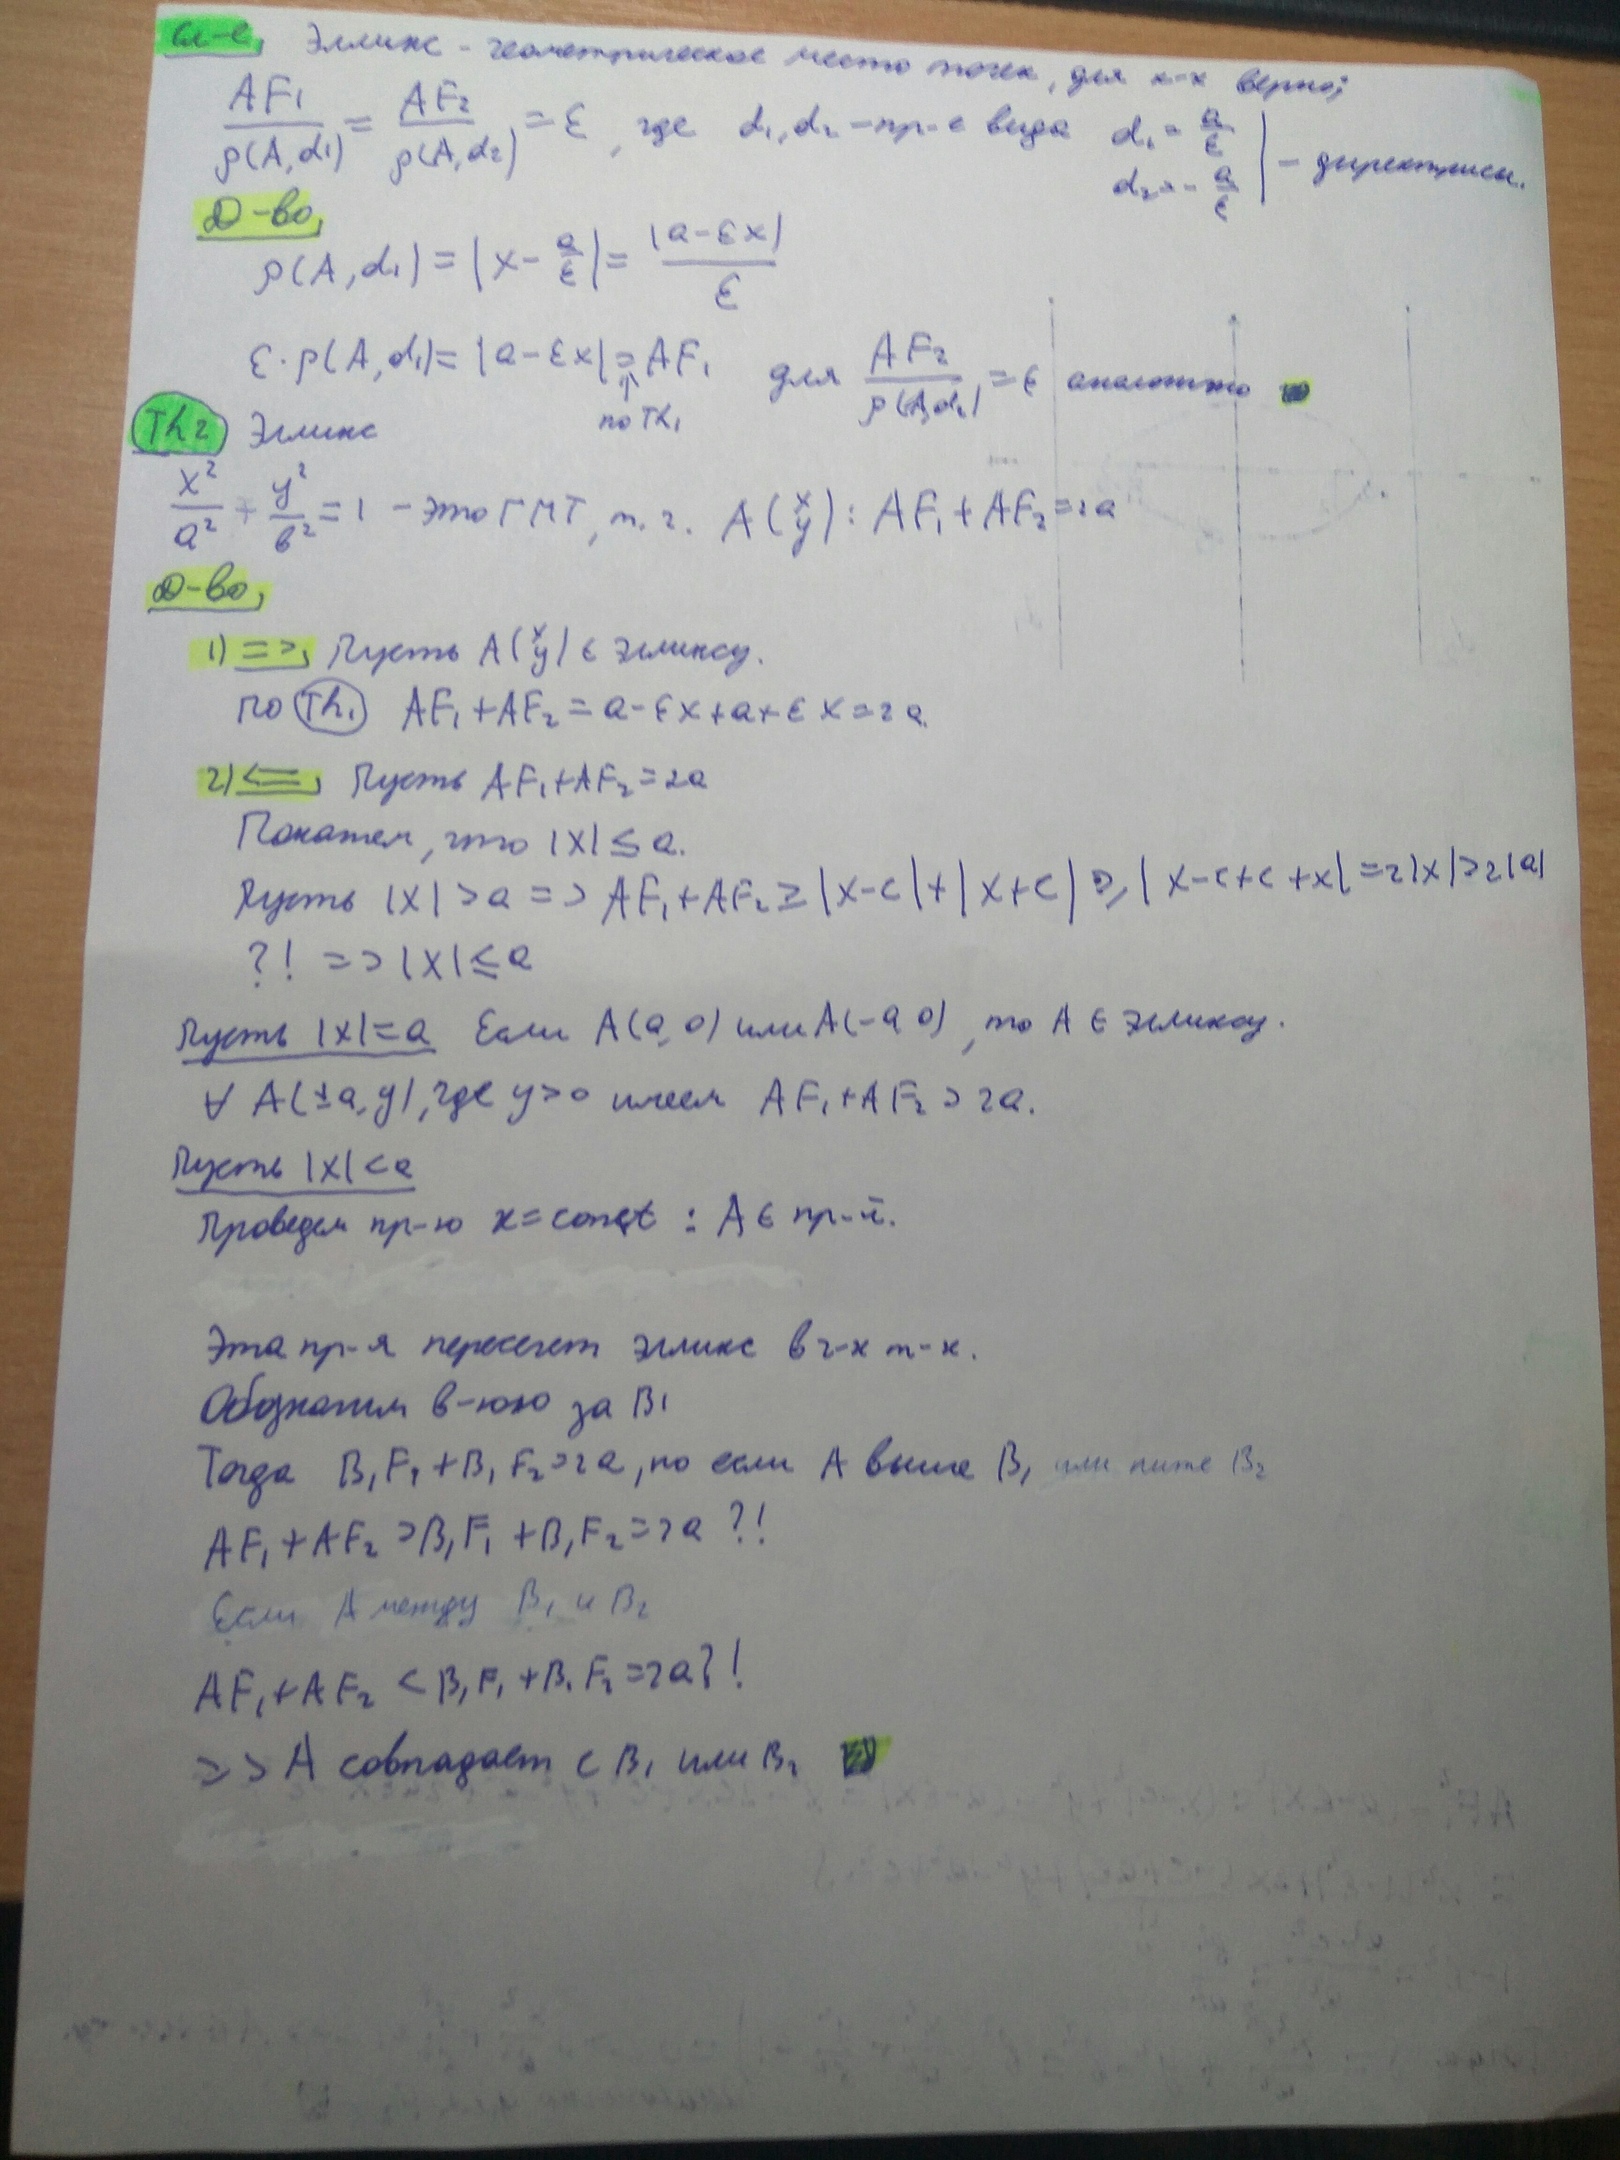 Сл-е, Эллипс - геометрическое место точек, для к-х верно:
AF₁/ρ(A,d₁) = AF₂/ρ(A,d₂) = ε, где d₁,d₂ - пр-е вида d₁ = a/ε
d₂ = - a/ε | - директрисы.
Д-во,
ρ(A,d₁) = |x - a/ε| = |a-εx|/ε
ε·ρ(A,d₁) = |a-εx| = AF₁ для AF₂/ρ(A,d₂) = ε аналогично
↑
по Th₁
Th 2 Эллипс
x²/a² + y²/b² = 1 - это ГМТ, т.ч. A(x y): AF₁+AF₂=2a
Д-во,
1) =>, Пусть A(x y) ∈ эллипсу.
По Th₁ AF₁+AF₂ = a-εx+a+εx=2a
2) <=, Пусть AF₁+AF₂=2a
Покажем, что |x| ≤ a.
Пусть |x|>a => AF₁+AF₂ ≥ |x-c|+|x+c| ≥ |x-c+c+x|=2|x|>2|a|
?! => |x| ≤ a
Пусть |x|=a Если A(a,0) или A(-a 0), то A ∈ эллипсу.
∀ A(±a,y), где y>0 имеем AF₁+AF₂ > 2a.
Пусть |x|<a
Проведем пр-ю x=const : A ∈ пр-й.
Эта пр-я пересечет эллипс в 2-х т-х.
Обозначим в-юю за B₁
Тогда B₁F₁+B₁F₂=2a, но если A выше B₁ или ниже B₂
AF₁+AF₂ > B₁F₁+B₁F₂=2a ?!
Если A между B₁ и B₂
AF₁+AF₂ < B₁F₁+B₁F₂=2a ?!
=> A совпадает с B₁ или B₂